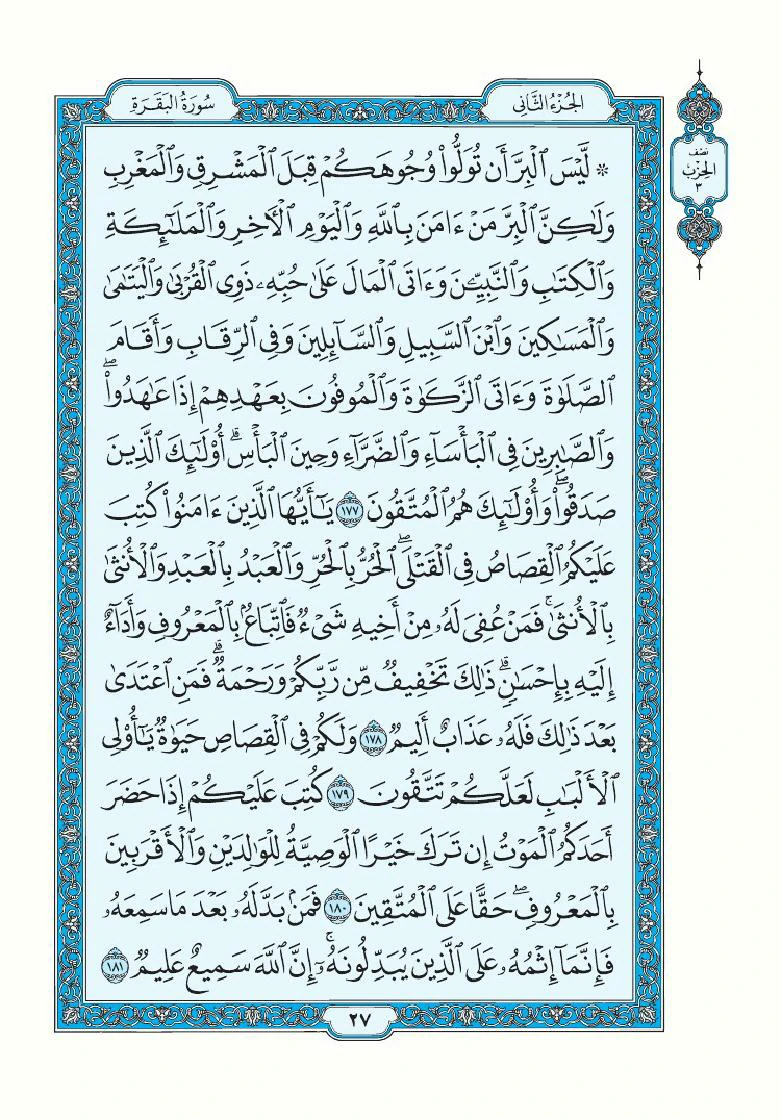 سُورَةُ البَقَرَةِ
الجُزْءُ الثَّانِي
نصف
الحِزْب
٣
۞ لَّيۡسَ ٱلۡبِرَّ أَن تُوَلُّواْ وُجُوهَكُمۡ قِبَلَ ٱلۡمَشۡرِقِ وَٱلۡمَغۡرِبِ
وَلَٰكِنَّ ٱلۡبِرَّ مَنۡ ءَامَنَ بِٱللَّهِ وَٱلۡيَوۡمِ ٱلۡأٓخِرِ وَٱلۡمَلَٰٓئِكَةِ
وَٱلۡكِتَٰبِ وَٱلنَّبِيِّـۧنَ وَءَاتَى ٱلۡمَالَ عَلَىٰ حُبِّهِۦ ذَوِي ٱلۡقُرۡبَىٰ وَٱلۡيَتَٰمَىٰ
وَٱلۡمَسَٰكِينَ وَٱبۡنَ ٱلسَّبِيلِ وَٱلسَّآئِلِينَ وَفِي ٱلرِّقَابِ وَأَقَامَ
ٱلصَّلَوٰةَ وَءَاتَى ٱلزَّكَوٰةَ وَٱلۡمُوفُونَ بِعَهۡدِهِمۡ إِذَا عَٰهَدُواْۖ
وَٱلصَّٰبِرِينَ فِي ٱلۡبَأۡسَآءِ وَٱلضَّرَّآءِ وَحِينَ ٱلۡبَأۡسِۗ أُوْلَٰٓئِكَ ٱلَّذِينَ
صَدَقُواْۖ وَأُوْلَٰٓئِكَ هُمُ ٱلۡمُتَّقُونَ ١٧٧ يَٰٓأَيُّهَا ٱلَّذِينَ ءَامَنُواْ كُتِبَ
عَلَيۡكُمُ ٱلۡقِصَاصُ فِي ٱلۡقَتۡلَىۖ ٱلۡحُرُّ بِٱلۡحُرِّ وَٱلۡعَبۡدُ بِٱلۡعَبۡدِ وَٱلۡأُنثَىٰ
بِٱلۡأُنثَىٰۚ فَمَنۡ عُفِيَ لَهُۥ مِنۡ أَخِيهِ شَيۡءٞ فَٱتِّبَاعُۢ بِٱلۡمَعۡرُوفِ وَأَدَآءٌ
إِلَيۡهِ بِإِحۡسَٰنٖۗ ذَٰلِكَ تَخۡفِيفٞ مِّن رَّبِّكُمۡ وَرَحۡمَةٞۗ فَمَنِ ٱعۡتَدَىٰ
بَعۡدَ ذَٰلِكَ فَلَهُۥ عَذَابٌ أَلِيمٞ ١٧٨ وَلَكُمۡ فِي ٱلۡقِصَاصِ حَيَوٰةٞ يَٰٓأُوْلِي
ٱلۡأَلۡبَٰبِ لَعَلَّكُمۡ تَتَّقُونَ ١٧٩ كُتِبَ عَلَيۡكُمۡ إِذَا حَضَرَ
أَحَدَكُمُ ٱلۡمَوۡتُ إِن تَرَكَ خَيۡرًا ٱلۡوَصِيَّةُ لِلۡوَٰلِدَيۡنِ وَٱلۡأَقۡرَبِينَ
بِٱلۡمَعۡرُوفِۖ حَقًّا عَلَى ٱلۡمُتَّقِينَ ١٨٠ فَمَنۢ بَدَّلَهُۥ بَعۡدَ مَا سَمِعَهُۥ
فَإِنَّمَآ إِثۡمُهُۥ عَلَى ٱلَّذِينَ يُبَدِّلُونَهُۥٓۚ إِنَّ ٱللَّهَ سَمِيعٌ عَلِيمٞ ١٨١
٢٧